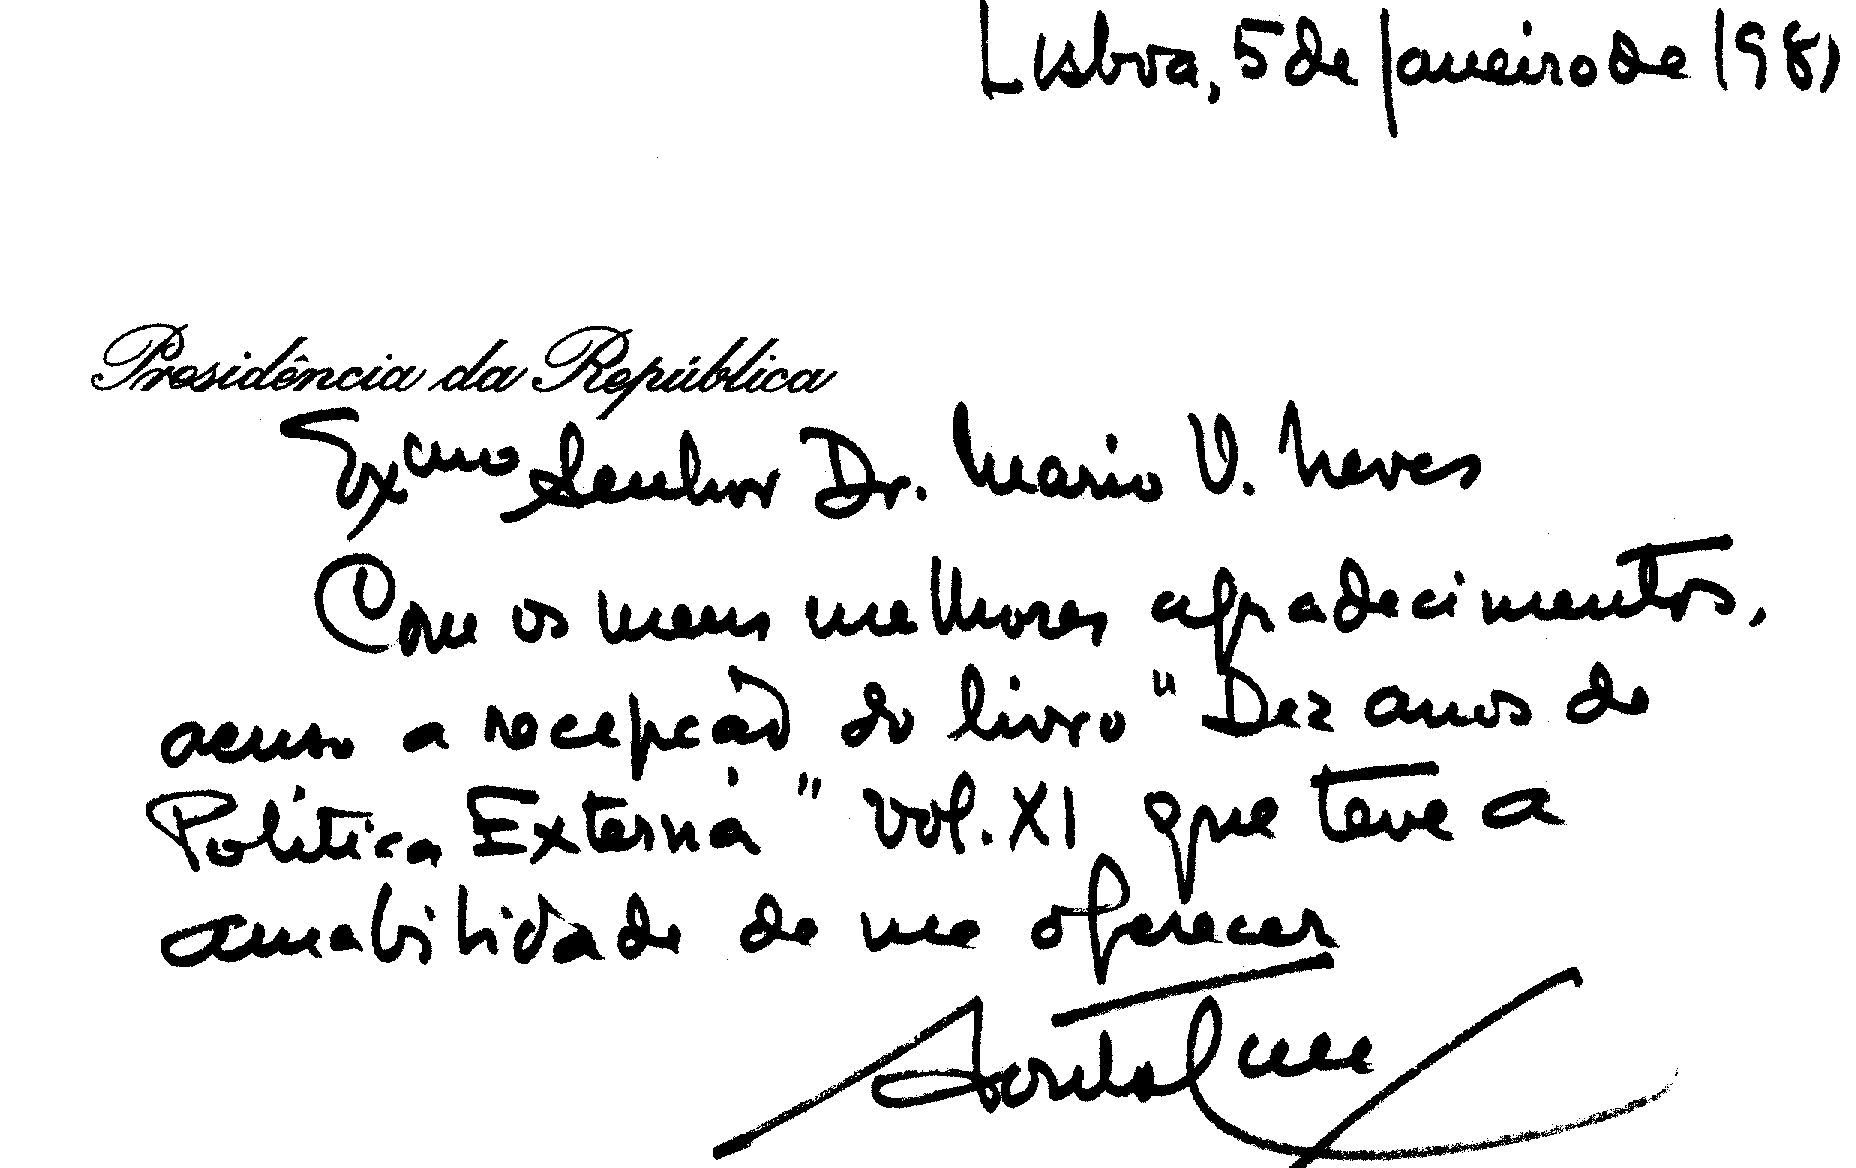 Lisboa, 5 de Janeiro de 1981
Presidência da República
Excmo Senhor Dr. Mario V. Neves
Com os meus melhores agradecimentos,
acuso a recepção do livro "Dez anos de
Política Externa" vol. XI que teve a
amabilidade de me oferecer